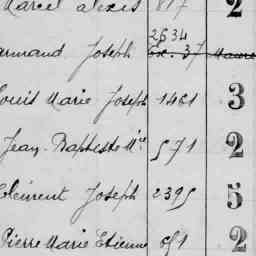 Marcel Alexis 817 2
Armand Joseph 2634
Ex. 37
Louis Marie Joseph 1461 3
Jean-Baptiste Mie 571 2
Clément Joseph 2395 5
Pierre Marie Etienne 2